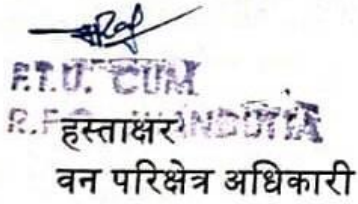 F.T.U. CUM
R.F.O.
हस्ताक्षर
वन परिक्षेत्र अधिकारी